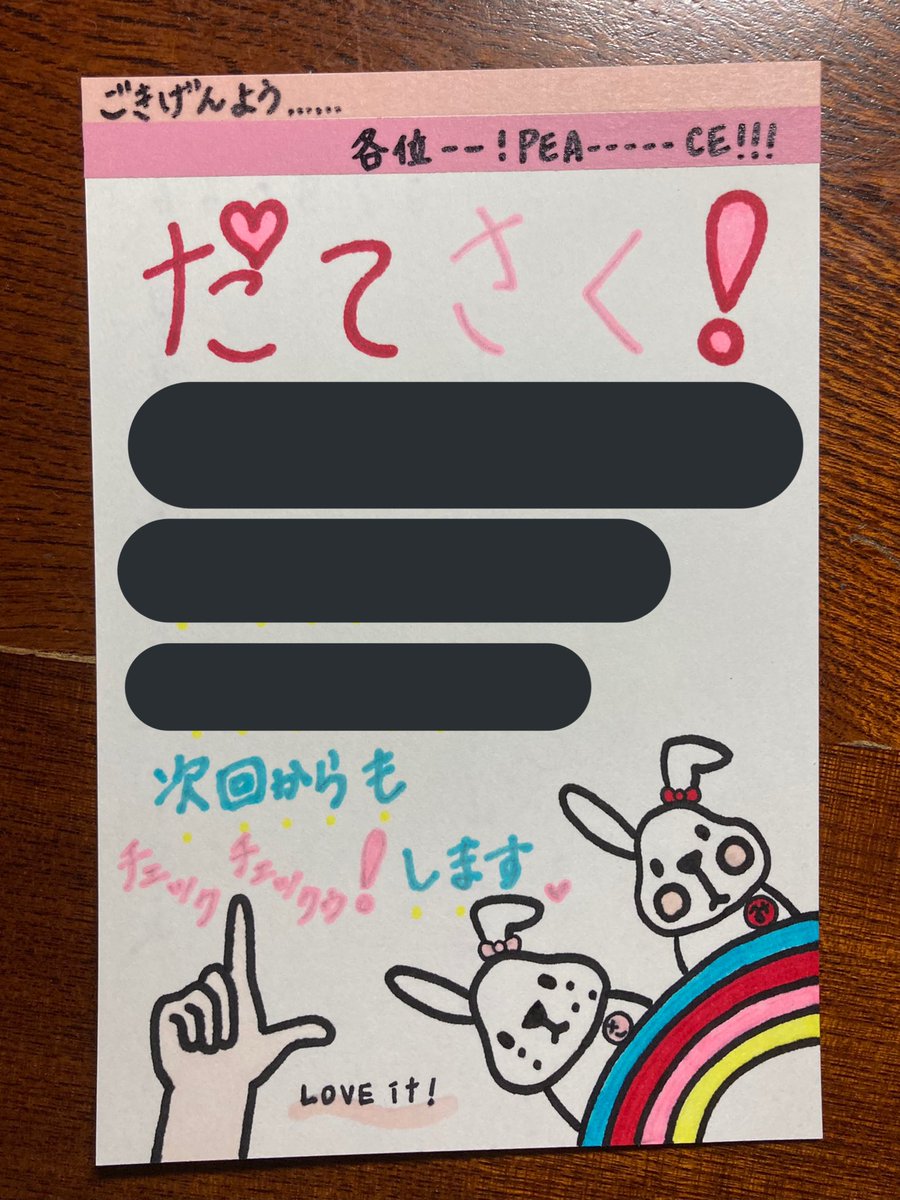 ごきげんよう......
各位--!PEA-----CE!!!
だてさく!
次回からも
チェックチェックゥ!します
LOVE it!